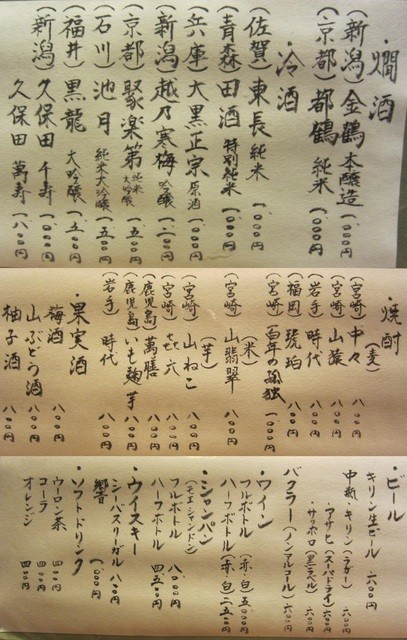 ・燗酒
(新潟) 金鶴 本醸造 一〇〇〇円
(京都) 都鶴 純米 一〇〇〇円
・冷酒
(佐賀) 東長 純米 一〇〇〇円
(青森) 田酒 特別純米 一〇〇〇円
(兵庫) 大黒正宗 原酒 一〇〇〇円
(新潟) 越乃寒梅 吟醸 一二〇〇円
(京都) 聚楽第 純米大吟醸 一五〇〇円
(石川) 池月 純米大吟醸 一五〇〇円
(福井) 黒龍 大吟醸 一五〇〇円
(新潟) 久保田 千寿 一〇〇〇円
久保田 萬寿 一八〇〇円
・焼酎
(麦)
(宮崎) 中々 八〇〇円
(宮崎) 山猿 八〇〇円
(岩手) 時代 八〇〇円
(福岡) 琥珀 八〇〇円
(宮崎) 百年の孤独 一〇〇〇円
(米)
(宮崎) 山翡翠 八〇〇円
(芋)
(宮崎) 山ねこ 八〇〇円
(宮崎) 㐂六 八〇〇円
(鹿児島) 萬膳 八〇〇円
(鹿児島) いも麹芋 八〇〇円
(岩手) 時代 八〇〇円
・果実酒
梅酒 八〇〇円
山ぶどう酒 八〇〇円
柚子酒 八〇〇円
・ビール
キリン生ビール 六〇〇円
中瓶・キリン(ラガー) 六〇〇円
・アサヒ(スーパードライ) 六〇〇円
・サッポロ(黒ラベル) 六〇〇円
バクラー(ノンアルコール) 六〇〇円
・ワイン
フルボトル (赤・白) 五〇〇〇円
ハーフボトル (赤・白) 二五〇〇円
・シャンパン
(モエ・シャンドン)
フルボトル 八〇〇〇円
ハーフボトル 四五〇〇円
・ウイスキー
シーバスリーガル 八〇〇円
響 一〇〇〇円
・ソフトドリンク
ウーロン茶 四〇〇円
コーラ 四〇〇円
オレンジ 四〇〇円